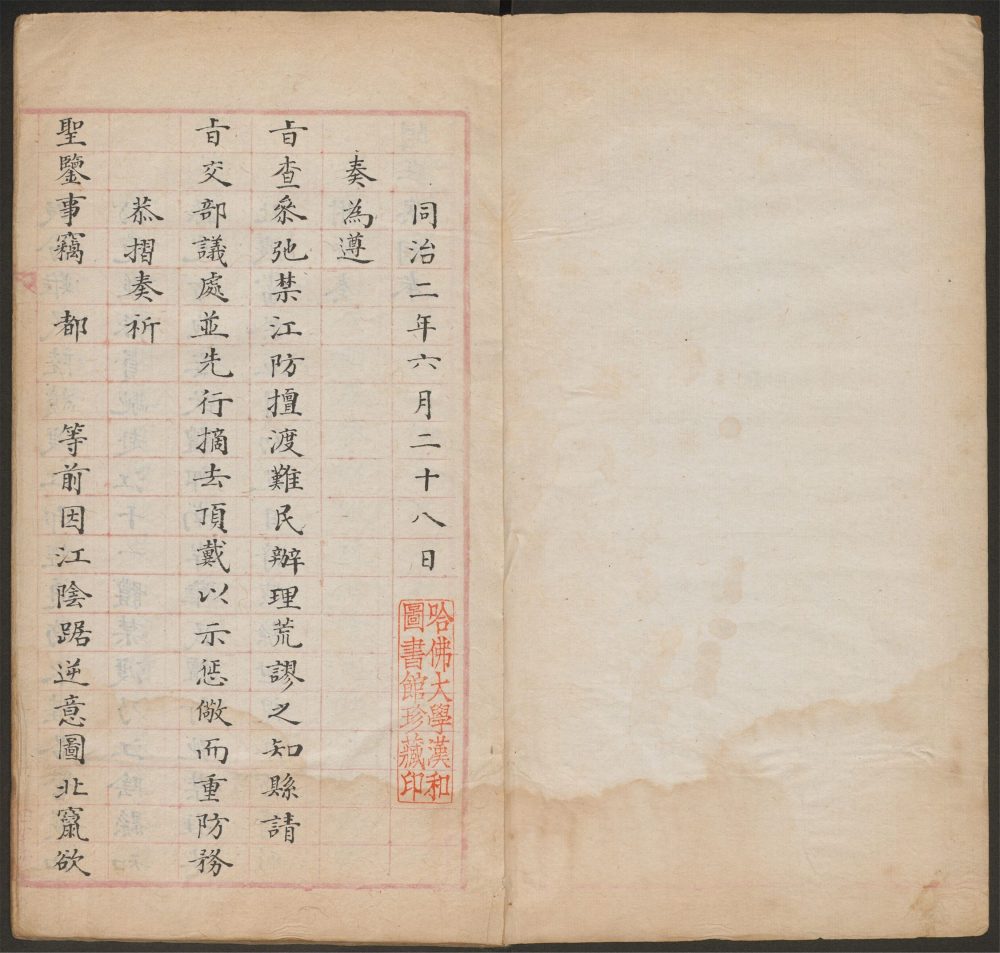 同治二年六月二十八日
哈佛大學漢和
圖書館珍藏印
奏為遵
旨查叅弛禁江防擅渡難民辦理荒謬之知縣請
旨交部議處並先行摘去頂戴以示懲儆而重防務
恭摺奏祈
聖鑒事竊 都 等前因江陰踞逆意圖北竄欲